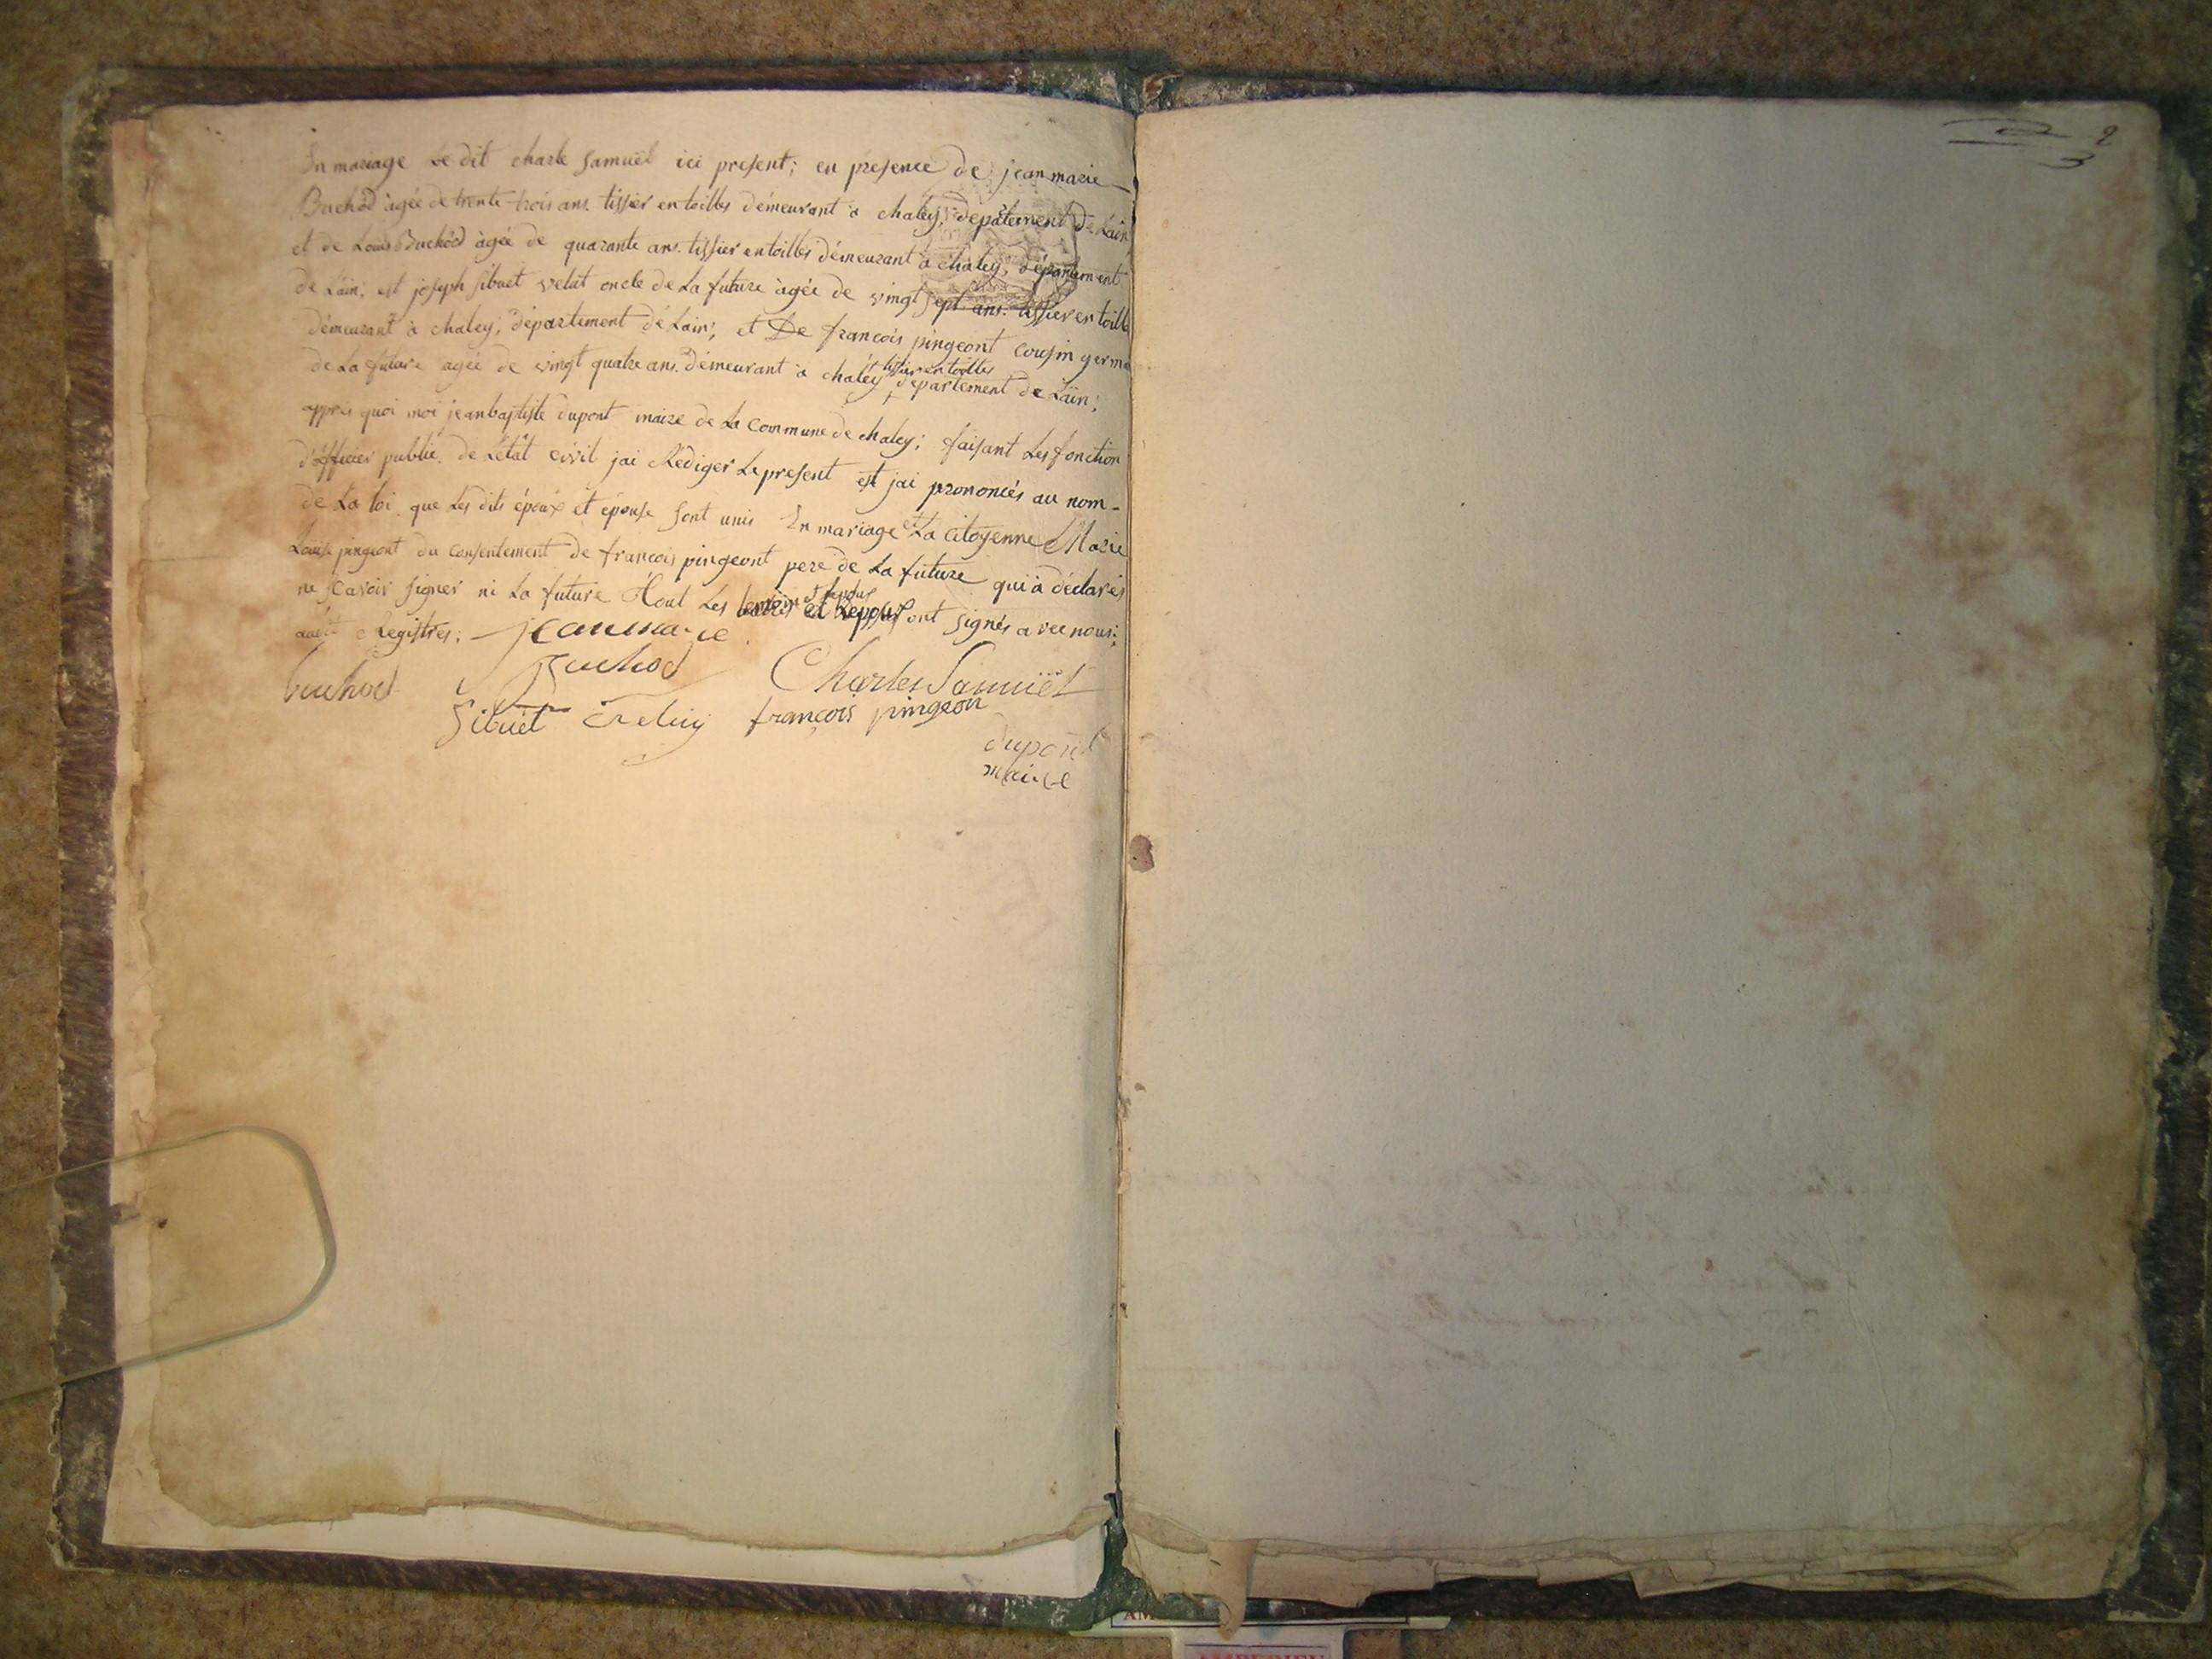 En mariage Le dit charle Samuël ici present; en presence de jean marie
Buchod àgée de trente trois ans. tissier en toilles démeurant à chaley; département De Lain
et de Louis Buchod àgée de quarante ans. tissier en toilles démeurant à chaley, département
de Lain; est joseph sibuet velut oncle de La future àgée de vingt sept ans. tissier en toille
démeurant à chaley; département dé Lain; et De francois pingeont cousin germa
tissier en toilles
de La future agée de vingt quatre ans. démeurant à chaley + département de Lain;
appres quoi moi jean baptiste dupont maire de La Commune de chaley; faisant Les fonction
d'officier public. de Létât civil jai Rédiger Le present est jai prononcés au nom -
de La loi. que Les dits époux et épouse sont unis En mariage et La citoyenne Marie
Louise pingeont du consentement de francois pingeont pere de La future qui à déclarés
ne scavoir signer ni La future Tout Les temoins et Lepoux ont signés avec nous;
audit Registres;
jeanmarie
buchod
buchod
Charles Samuël
Sibuet
françois pingeon
dupont
maire
2
2
3